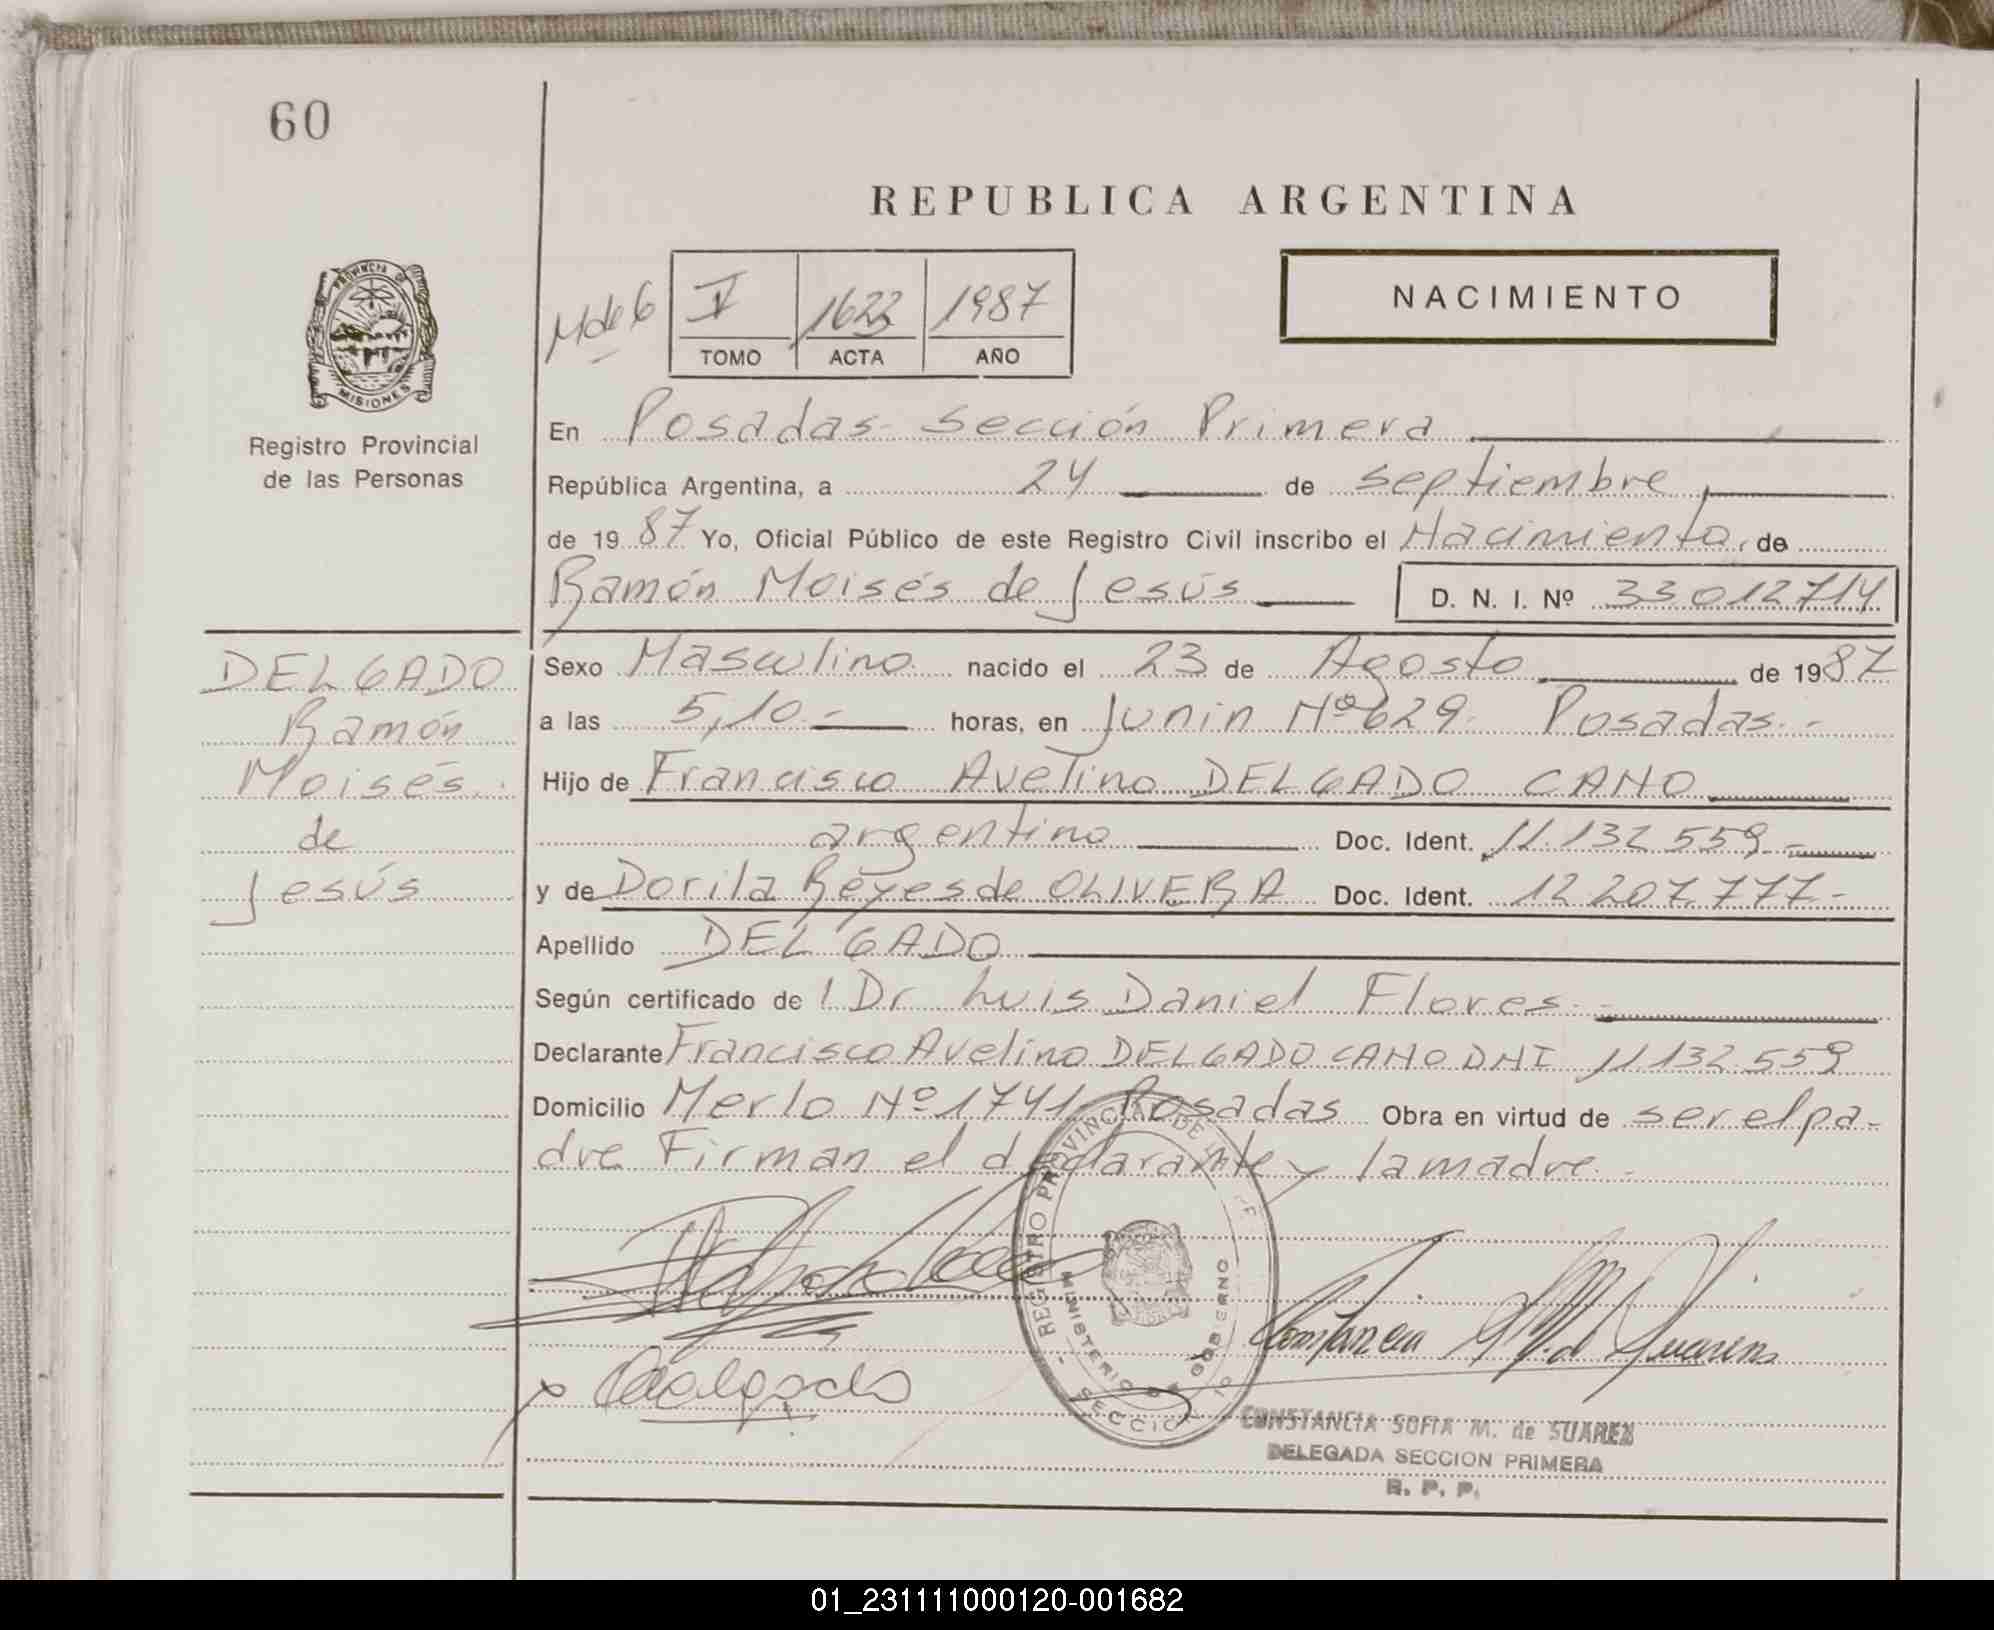 60
REPUBLICA ARGENTINA
NACIMIENTO
V 1622 1987
TOMO ACTA AÑO
PROVINCIA DE
MISIONES
Registro Provincial
de las Personas
En Posadas - Sección Primera
República Argentina, a 24 de septiembre
de 1987 Yo, Oficial Público de este Registro Civil inscribo el Nacimiento, de
Ramón Moisés de Jesús D. N. I. Nº 33012714
DELGADO
Ramón
Moisés
de
Jesús
Sexo Masculino nacido el 23 de Agosto de 1987
a las 5,10.- horas, en Junin Nº 629. Posadas.-
Hijo de Francisco Avelino DELGADO CANO
argentino Doc. Ident. 11.132.559.-
y de Dorila Reyes de OLIVERA Doc. Ident. 12.207.777.-
Apellido DELGADO
Según certificado de l Dr Luis Daniel Flores.-
Declarante Francisco Avelino DELGADO CANO DNI 11132559
Domicilio Merlo Nº 1741 Posadas Obra en virtud de ser el pa-
dre Firman el declarante y la madre.-
REGISTRO PROVINCIAL DE
MINISTERIO DE GOBIERNO
SECCION
CONSTANCIA SOFIA M. de SUAREZ
DELEGADA SECCION PRIMERA
R. P. P.
01_231111000120-001682